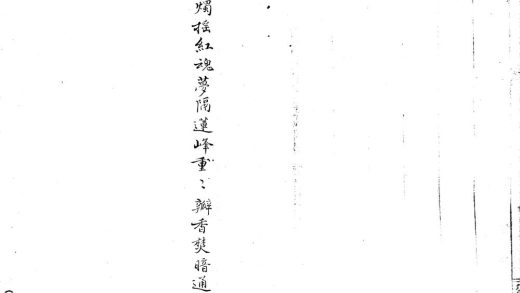 燭搖紅魂夢隔蓮峰重〻瓣香爇暗通